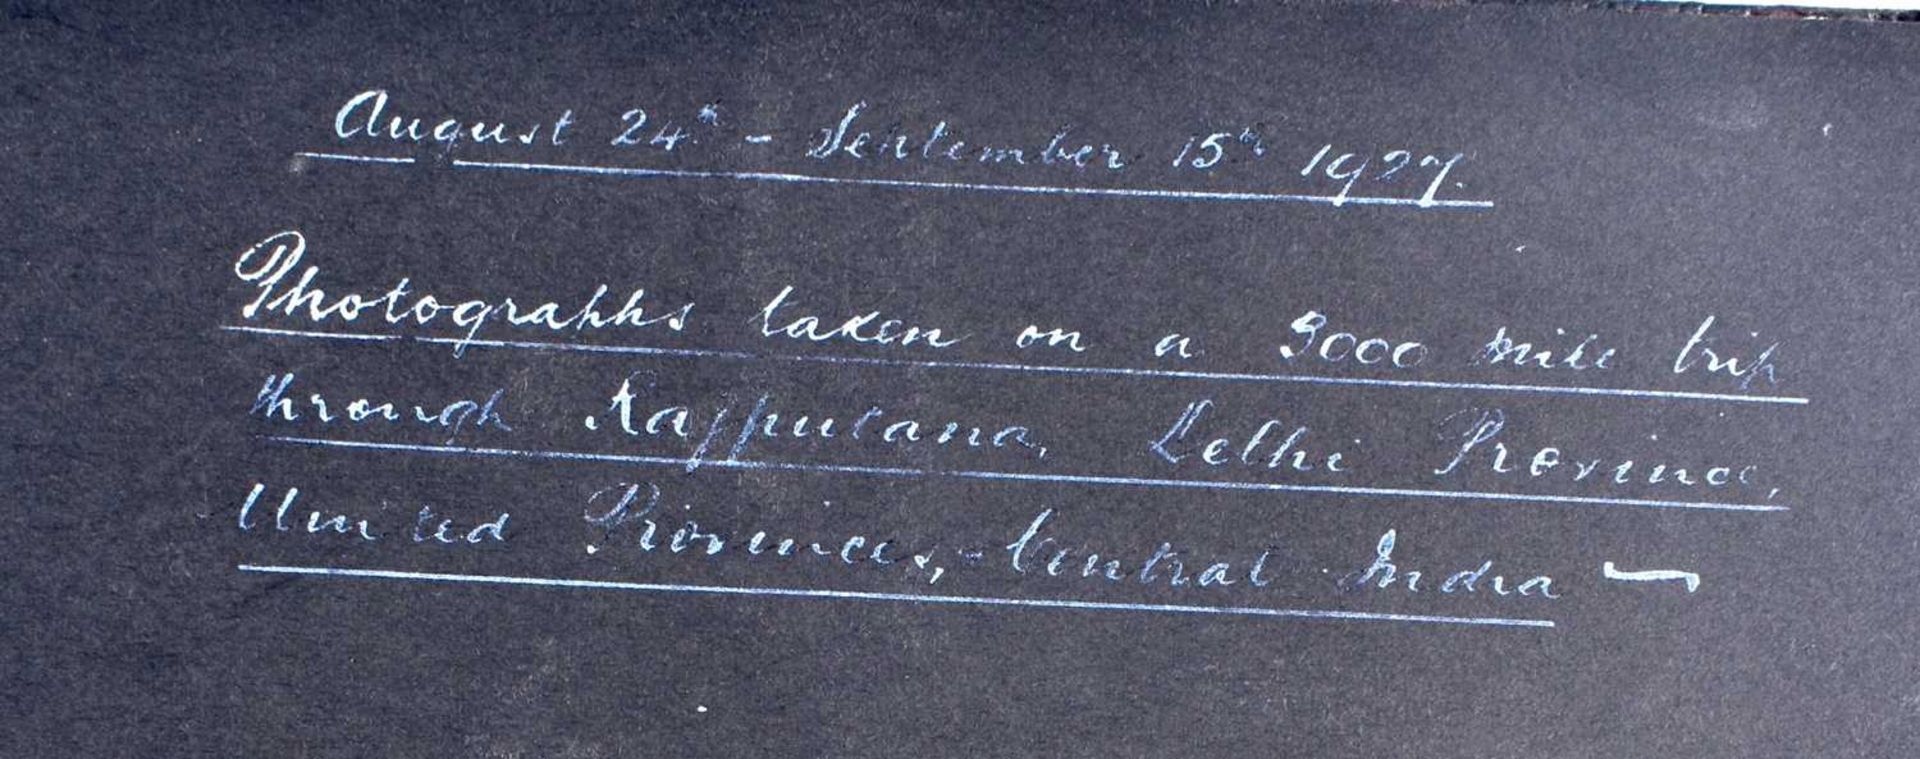 August 24th - September 15th 1927.
Photographs taken on a 3000 mile trip
through Rajputana, Delhi Province,
United Provinces, - Central India —